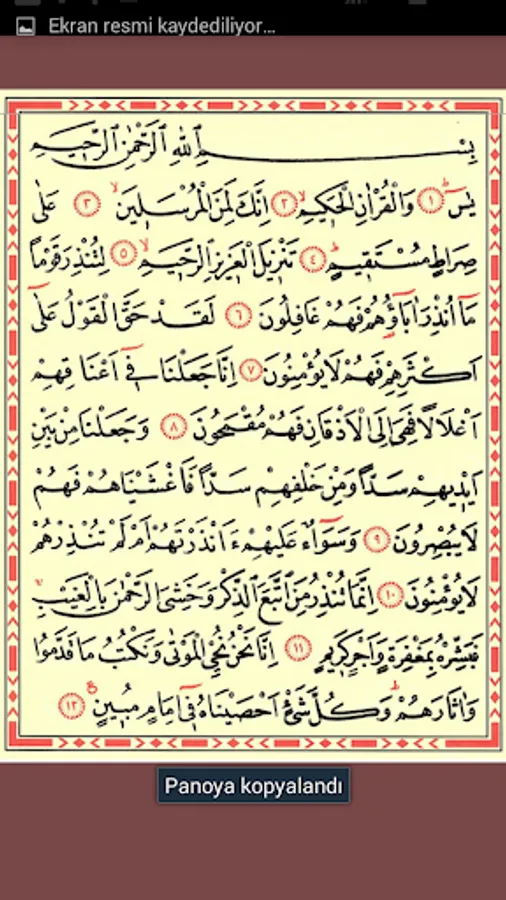 Ekran resmi kaydediliyor...
بِسْمِ اللّٰهِ الرَّحْمٰنِ الرَّحٖيمِ
يٰسٓ ۚ ﴿١﴾ وَالْقُرْاٰنِ الْحَكٖيمِۙ ﴿٢﴾ اِنَّكَ لَمِنَ الْمُرْسَلٖينَۙ ﴿٣﴾ عَلٰى
صِرَاطٍ مُسْتَقٖيمٍؕ ﴿٤﴾ تَنْزٖيلَ الْعَزٖيزِ الرَّحٖيمِۙ ﴿٥﴾ لِتُنْذِرَ قَوْمًا
مَٓا اُنْذِرَ اٰبَٓاؤُ۬هُمْ فَهُمْ غَافِلُونَ ﴿٦﴾ لَقَدْ حَقَّ الْقَوْلُ عَلٰٓى
اَكْثَرِهِمْ فَهُمْ لَا يُؤْمِنُونَ ﴿٧﴾ اِنَّا جَعَلْنَا فٖٓى اَعْنَاقِهِمْ
اَغْلَالًا فَهِىَ اِلَى الْاَذْقَانِ فَهُمْ مُقْمَحُونَ ﴿٨﴾ وَجَعَلْنَا مِنْ بَيْنِ
اَيْدٖيهِمْ سَدًّا وَمِنْ خَلْفِهِمْ سَدًّا فَاَغْشَيْنَاهُمْ فَهُمْ
لَا يُبْصِرُونَ ﴿٩﴾ وَسَوَٓاءٌ عَلَيْهِمْ ءَاَنْذَرْتَهُمْ اَمْ لَمْ تُنْذِرْهُمْ
لَا يُؤْمِنُونَ ﴿١٠﴾ اِنَّمَا تُنْذِرُ مَنِ اتَّبَعَ الذِّكْرَ وَخَشِىَ الرَّحْمٰنَ بِالْغَيْبِۚ
فَبَشِّرْهُ بِمَغْفِرَةٍ وَاَجْرٍ كَرٖيمٍ ﴿١١﴾ اِنَّا نَحْنُ نُحْيِى الْمَوْتٰى وَنَكْتُبُ مَا قَدَّمُوا
وَاٰثَارَهُمْؕ وَكُلَّ شَىْءٍ اَحْصَيْنَاهُ فٖٓى اِمَامٍ مُبٖينٍ ﴿١٢﴾
Panoya kopyalandı